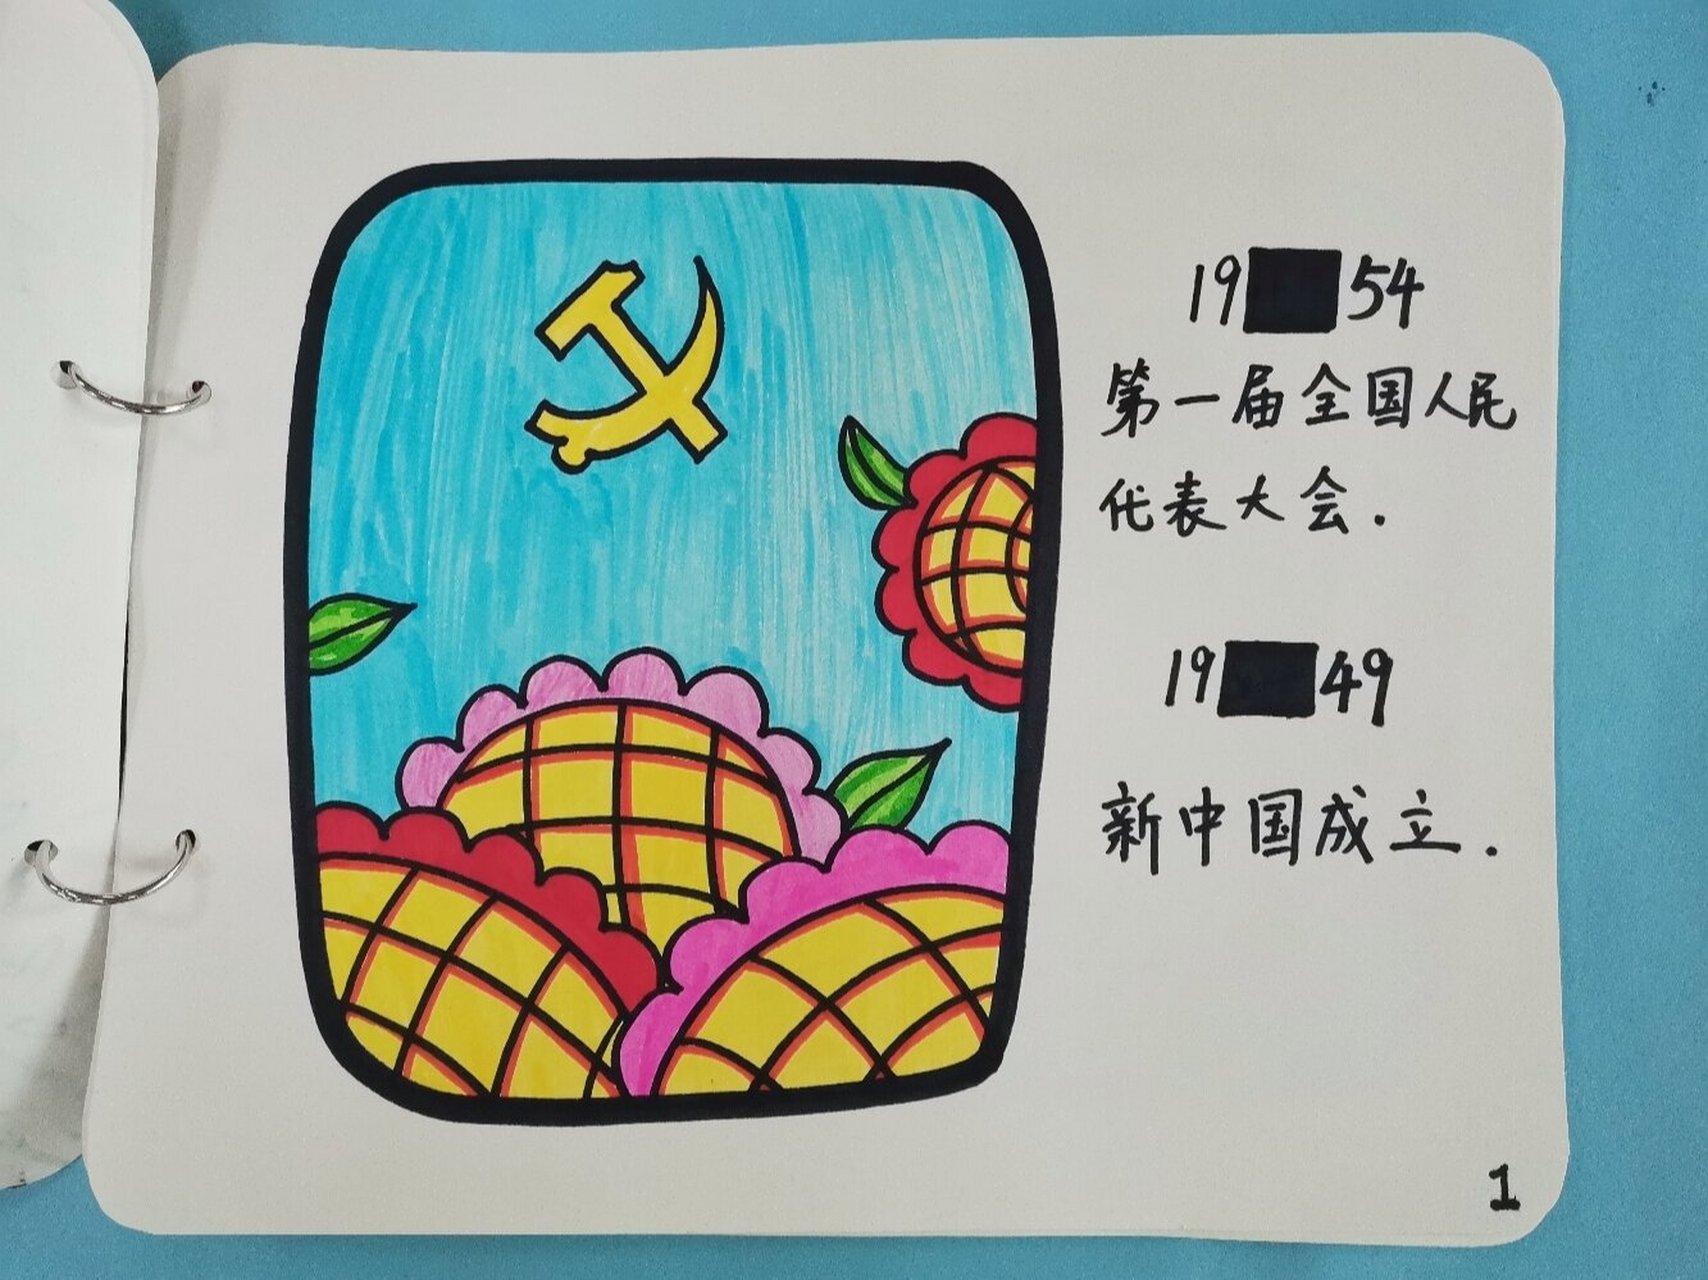 19■54
第一届全国人民
代表大会.
19■49
新中国成立.
1